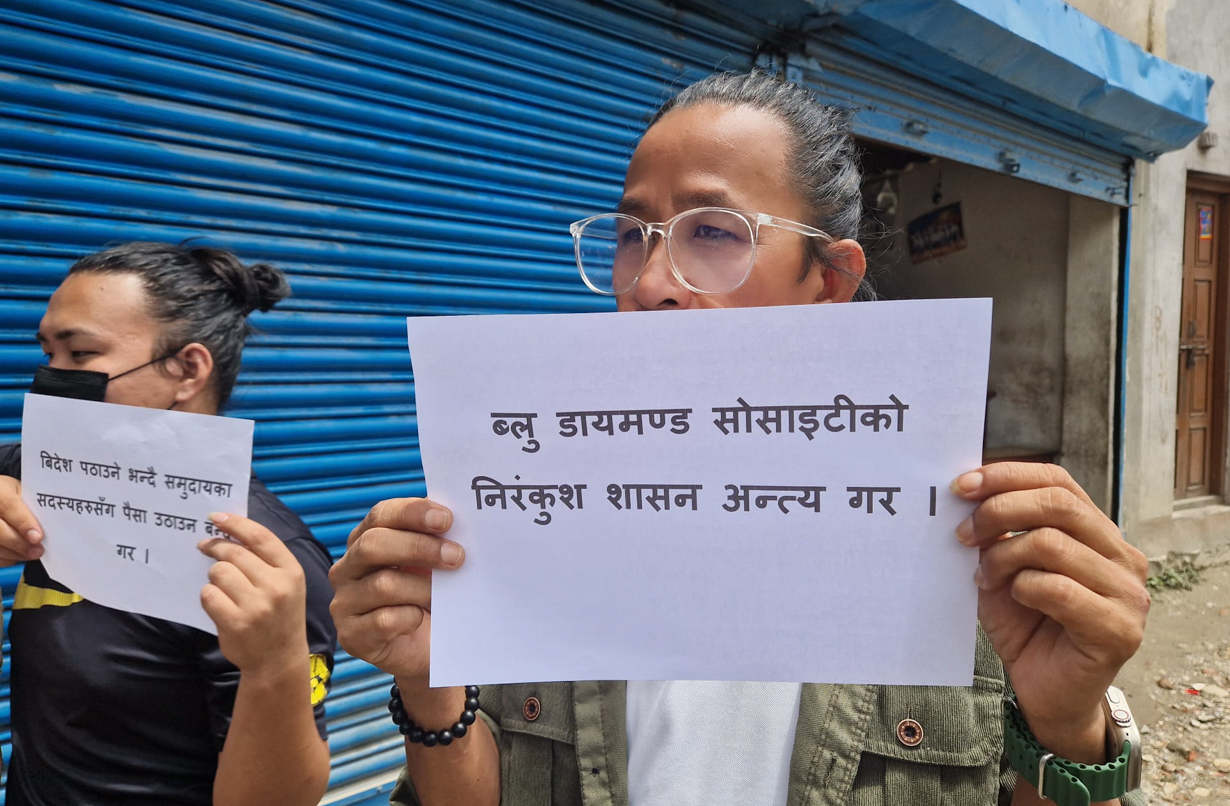 बिदेश पठाउने भन्दै समुदायका
सदस्यहरुसँग पैसा उठाउन बन्द
गर ।
ब्लु डायमण्ड सोसाइटीको
निरंकुश शासन अन्त्य गर ।